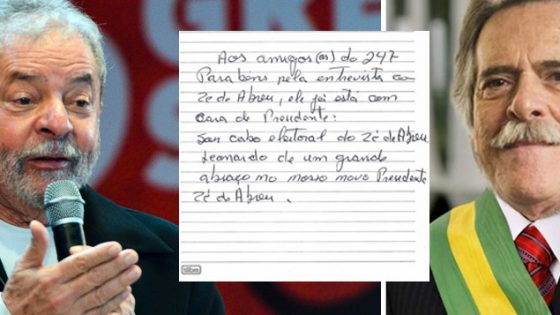 GRE
Aos amigos(as) do 247
Parabens pela entrevista co
Zé de Abreu, ele já está com
cara de Presidente.
Sou cabo eleitoral do Zé de Abreu
Leonardo de um grande
abraço no nosso novo Presidente
Zé de Abreu.
tilibra